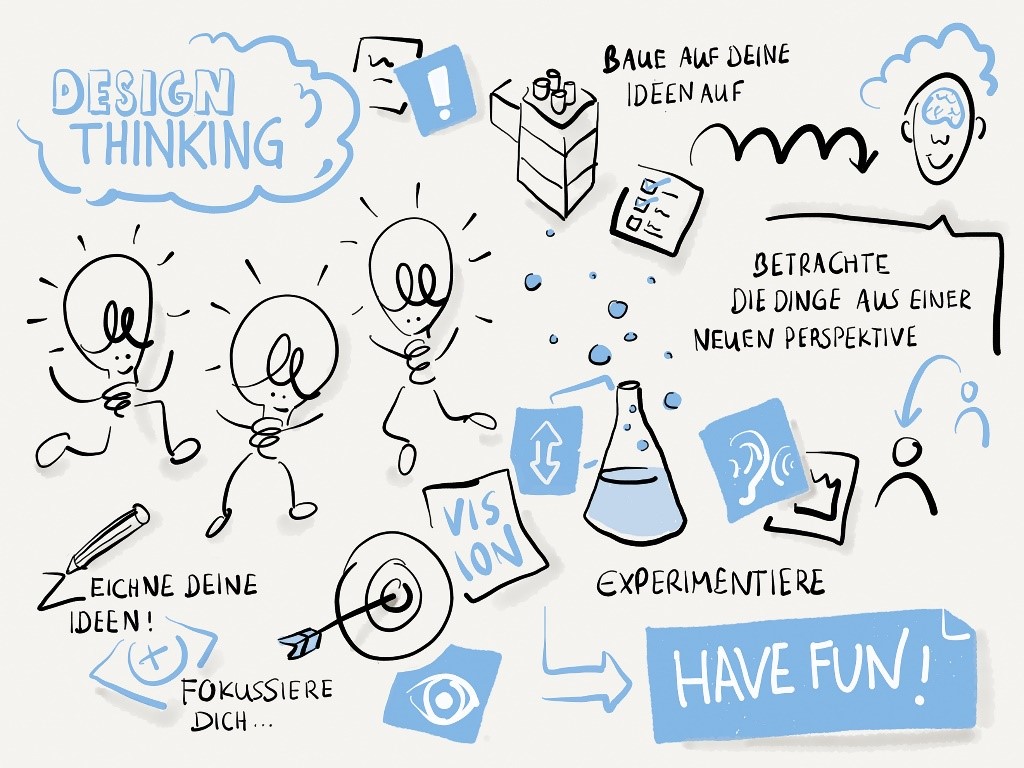 DESIGN
THINKING
BAUE AUF DEINE
IDEEN AUF
BETRACHTE
DIE DINGE AUS EINER
NEUEN PERSPEKTIVE
VIS
ION
ZEICHNE DEINE
IDEEN!
EXPERIMENTIERE
FOKUSSIERE
DICH...
HAVE FUN!